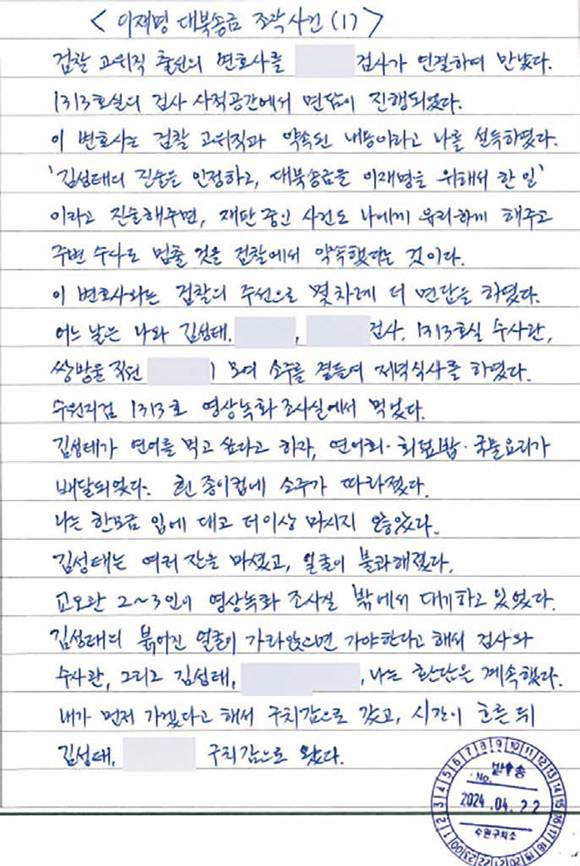 < 이재명 대북송금 조작사건 (1) >
검찰 고위직 출신의 변호사를 검사가 연결하여 만났다.
1313호실의 검사 사적공간에서 면담이 진행되었다.
이 변호사는 검찰 고위직과 약속된 내용이라고 나를 설득하였다.
'김성태의 진술을 인정하고, 대북송금을 이재명을 위해서 한 일'
이라고 진술해주면, 재판 중인 사건도 나에게 유리하게 해주고
주변 수사도 멈출 것을 검찰에서 약속했다는 것이다.
이 변호사와는 검찰의 주선으로 몇차례 더 면담을 하였다.
어느 날은 나와 김성태, , 검사, 1313호실 수사관,
쌍방울 직원 이 모여 소주를 곁들여 저녁식사를 하였다.
수원지검 1313호 영상녹화 조사실에서 먹었다.
김성태가 연어를 먹고 싶다고 하자, 연어회·회덮밥·국물요리가
배달되었다. 흰 종이컵에 소주가 따라졌다.
나는 한모금 입에 대고 더이상 마시지 않았다.
김성태는 여러 잔을 마셨고, 얼굴이 불콰해졌다.
교도관 2~3인이 영상녹화 조사실 밖에서 대기하고 있었다.
김성태의 붉어진 얼굴이 가라앉으면 가야한다고 해서 검사와
수사관, 그리고 김성태, , 나는 환담을 계속했다.
내가 먼저 가겠다고 해서 구치감으로 갔고, 시간이 흐른 뒤
김성태, 구치감으로 왔다.
No.
2024. 04. 22
수원구치소